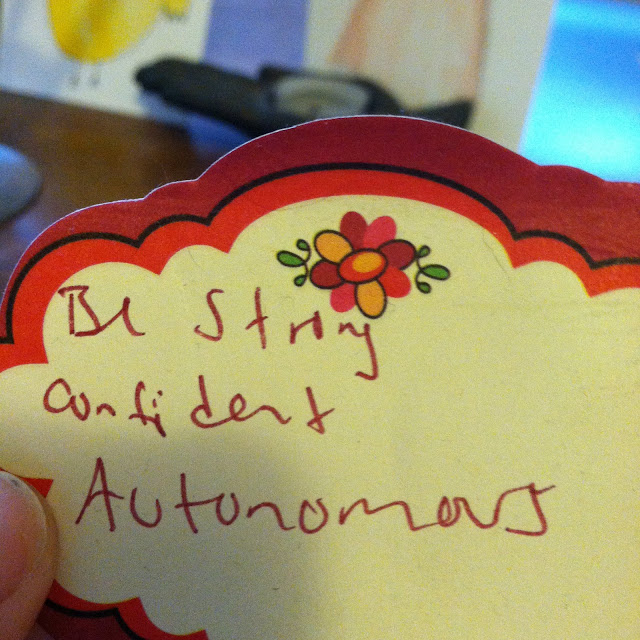 Be Strong
Confident
Autonomous